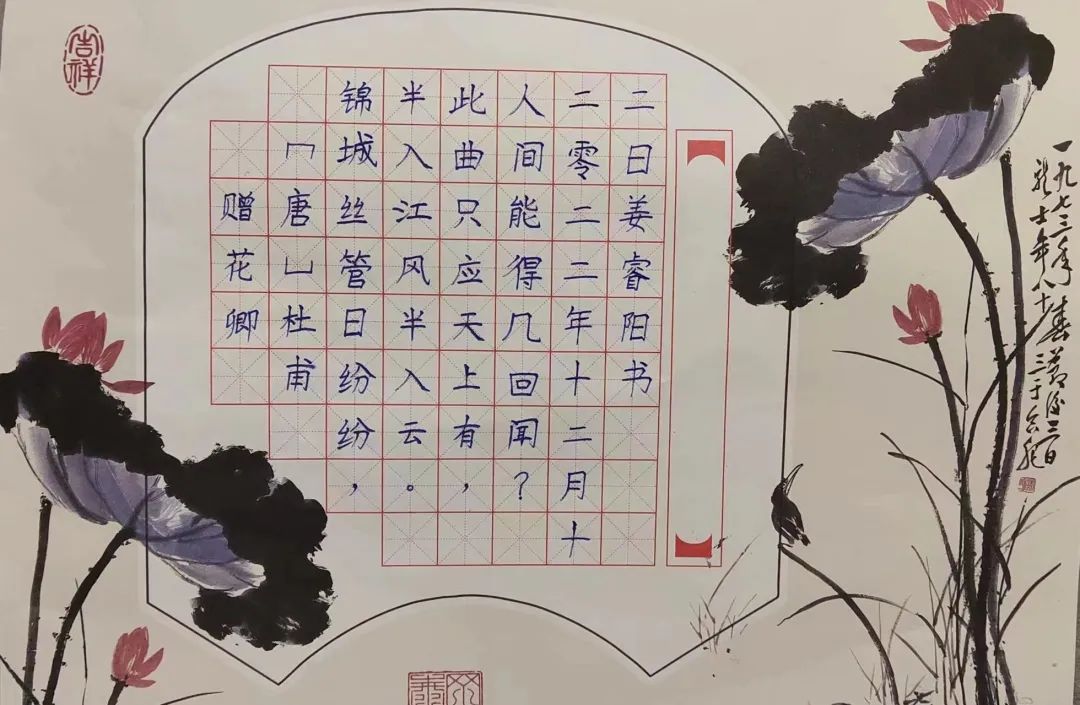 吉祥
赠花卿
[唐]杜甫
锦城丝管日纷纷，
半入江风半入云。
此曲只应天上有，
人间能得几回闻？
二零二二年十二月十
二日姜睿阳书
一九七三年